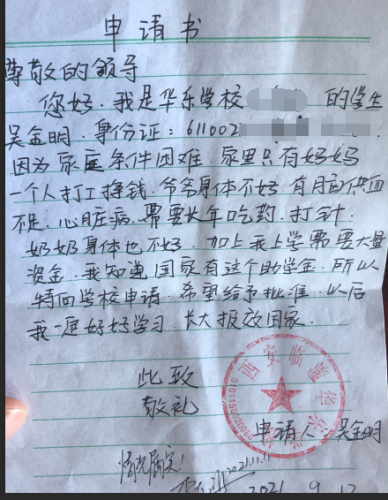 申请书
尊敬的领导
您好.我是华乐学校 的学生
吴金明.身份证:611002
因为家庭条件困难.家里只有妈妈
一个人打工挣钱.爷爷身体不好.有 脑供血
不足.心脏病.需要长年吃药.打针.
奶奶身体也不好.加上我上学需要大量
资金.我知道国家有这个助学金.所以
特向学校申请.希望给予批准.以后
我一定好好学习.长大报效国家.
此致
敬礼
西安临潼
申请人 吴金明
情况属实!
2021.11.11
2021.9.12